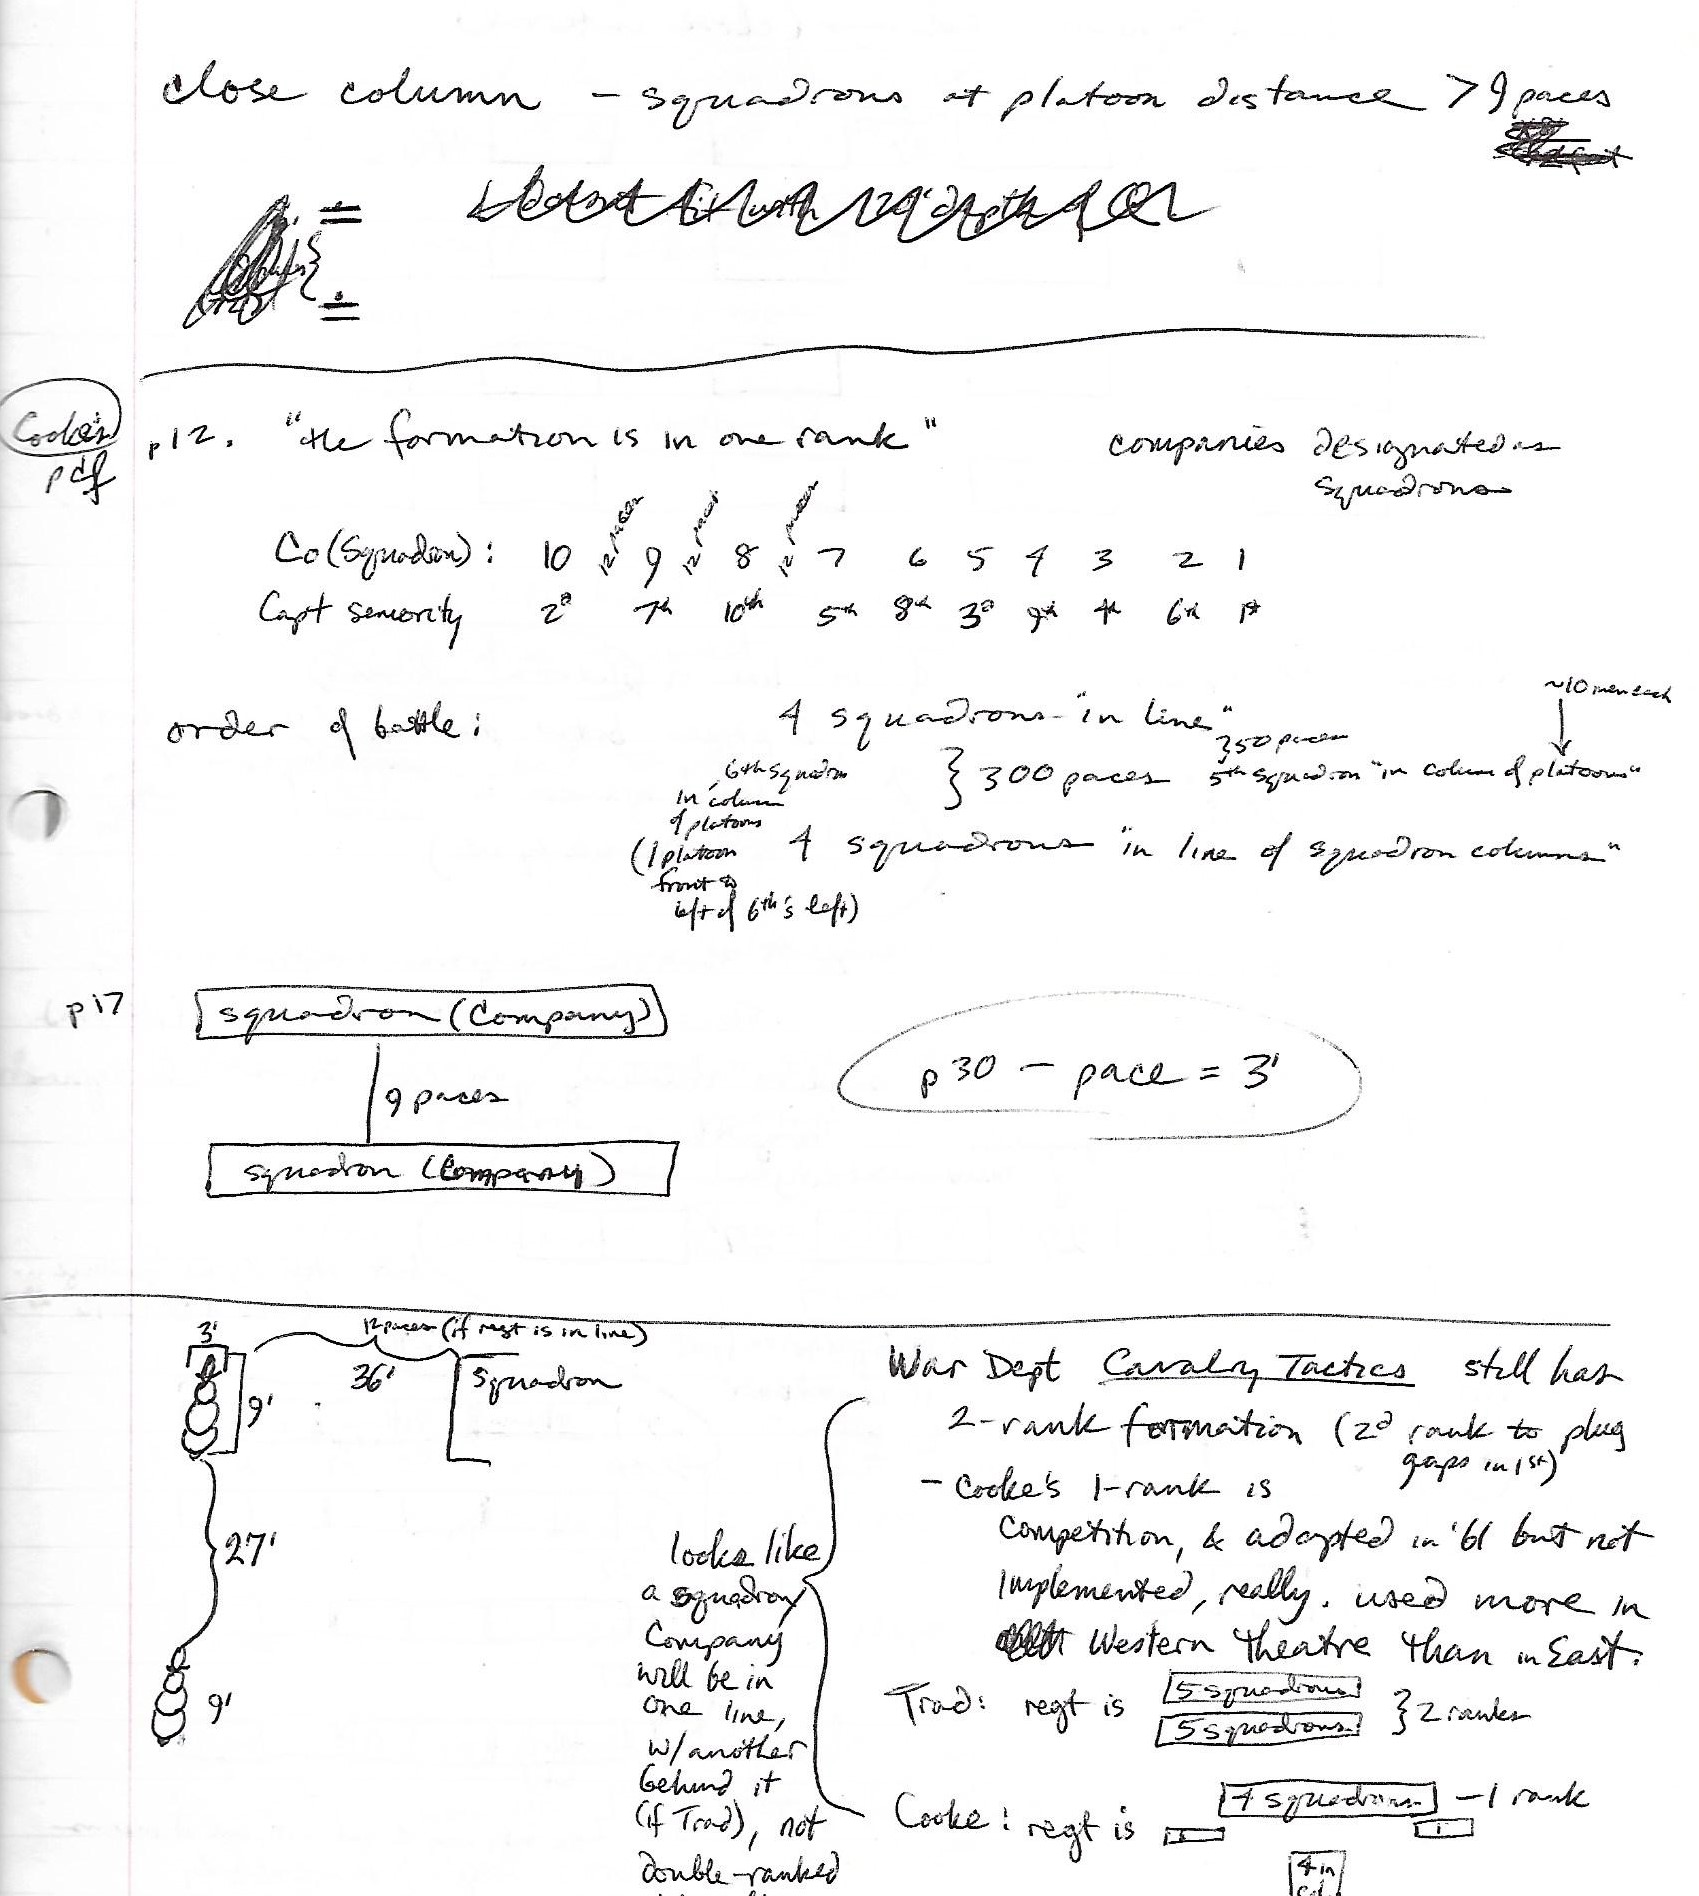 close column - squadrons at platoon distance > 9 paces
Cooke's
pdf
p12. "the formation is in one rank"
companies designated as
squadrons
Co (Squadron): 10 12 paces 9 12 paces 8 12 paces 7 6 5 4 3 2 1
Capt seniority 2d 7th 10th 5th 8th 3d 9th 4th 6th 1st
~10 men each
order of battle:
4 squadrons "in line"
}50 paces
6th squadron
in column
of platoons
(1 platoon
front to
left of 6th's left)
} 300 paces
5th squadron "in column of platoons"
4 squadrons "in line of squadron columns"
p17
squadron (Company)
9 paces
squadron (Company)
p30 - pace = 3'
3'
12 paces (if regt is in line)
36'
Squadron
9'
27'
9'
War Dept Cavalry Tactics still has
2-rank formation (2d rank to plug
gaps in 1st)
- Cooke's 1-rank is
competition, & adopted in '61 but not
implemented, really. used more in
Western theatre than in East.
looks like
a squadron/
Company
will be in
one line,
w/another
behind it
(if Trad), not
double-ranked
Trad: regt is
5 squadrons
5 squadrons
} 2 ranks
Cooke: regt is
4 squadrons
- 1 rank
1
1
4 in
col